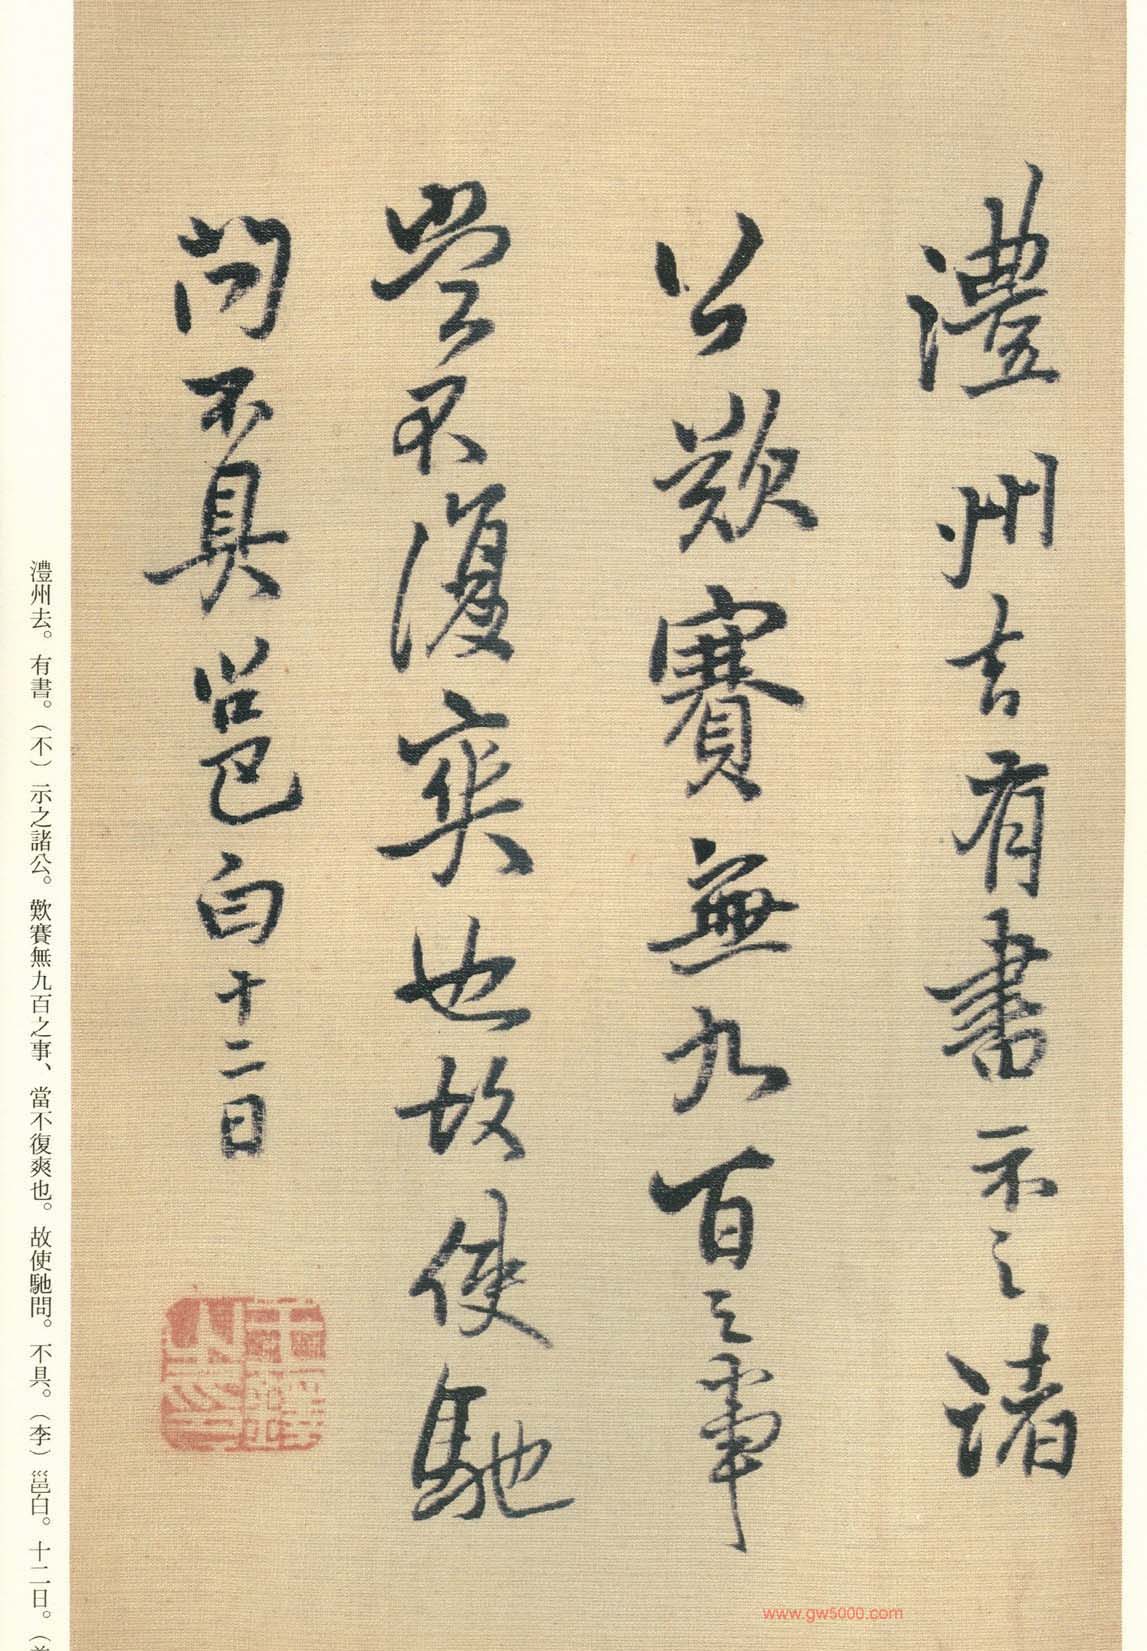 澧州去有書示之諸
公歎賽無九百之事
當不復爽也故使馳
問不具邕白十二日
澧州去。有書。（不）示之諸公。歎賽無九百之事、當不復爽也。故使馳問。不具。（李）邕白。十二日。（
www.gw5000.com